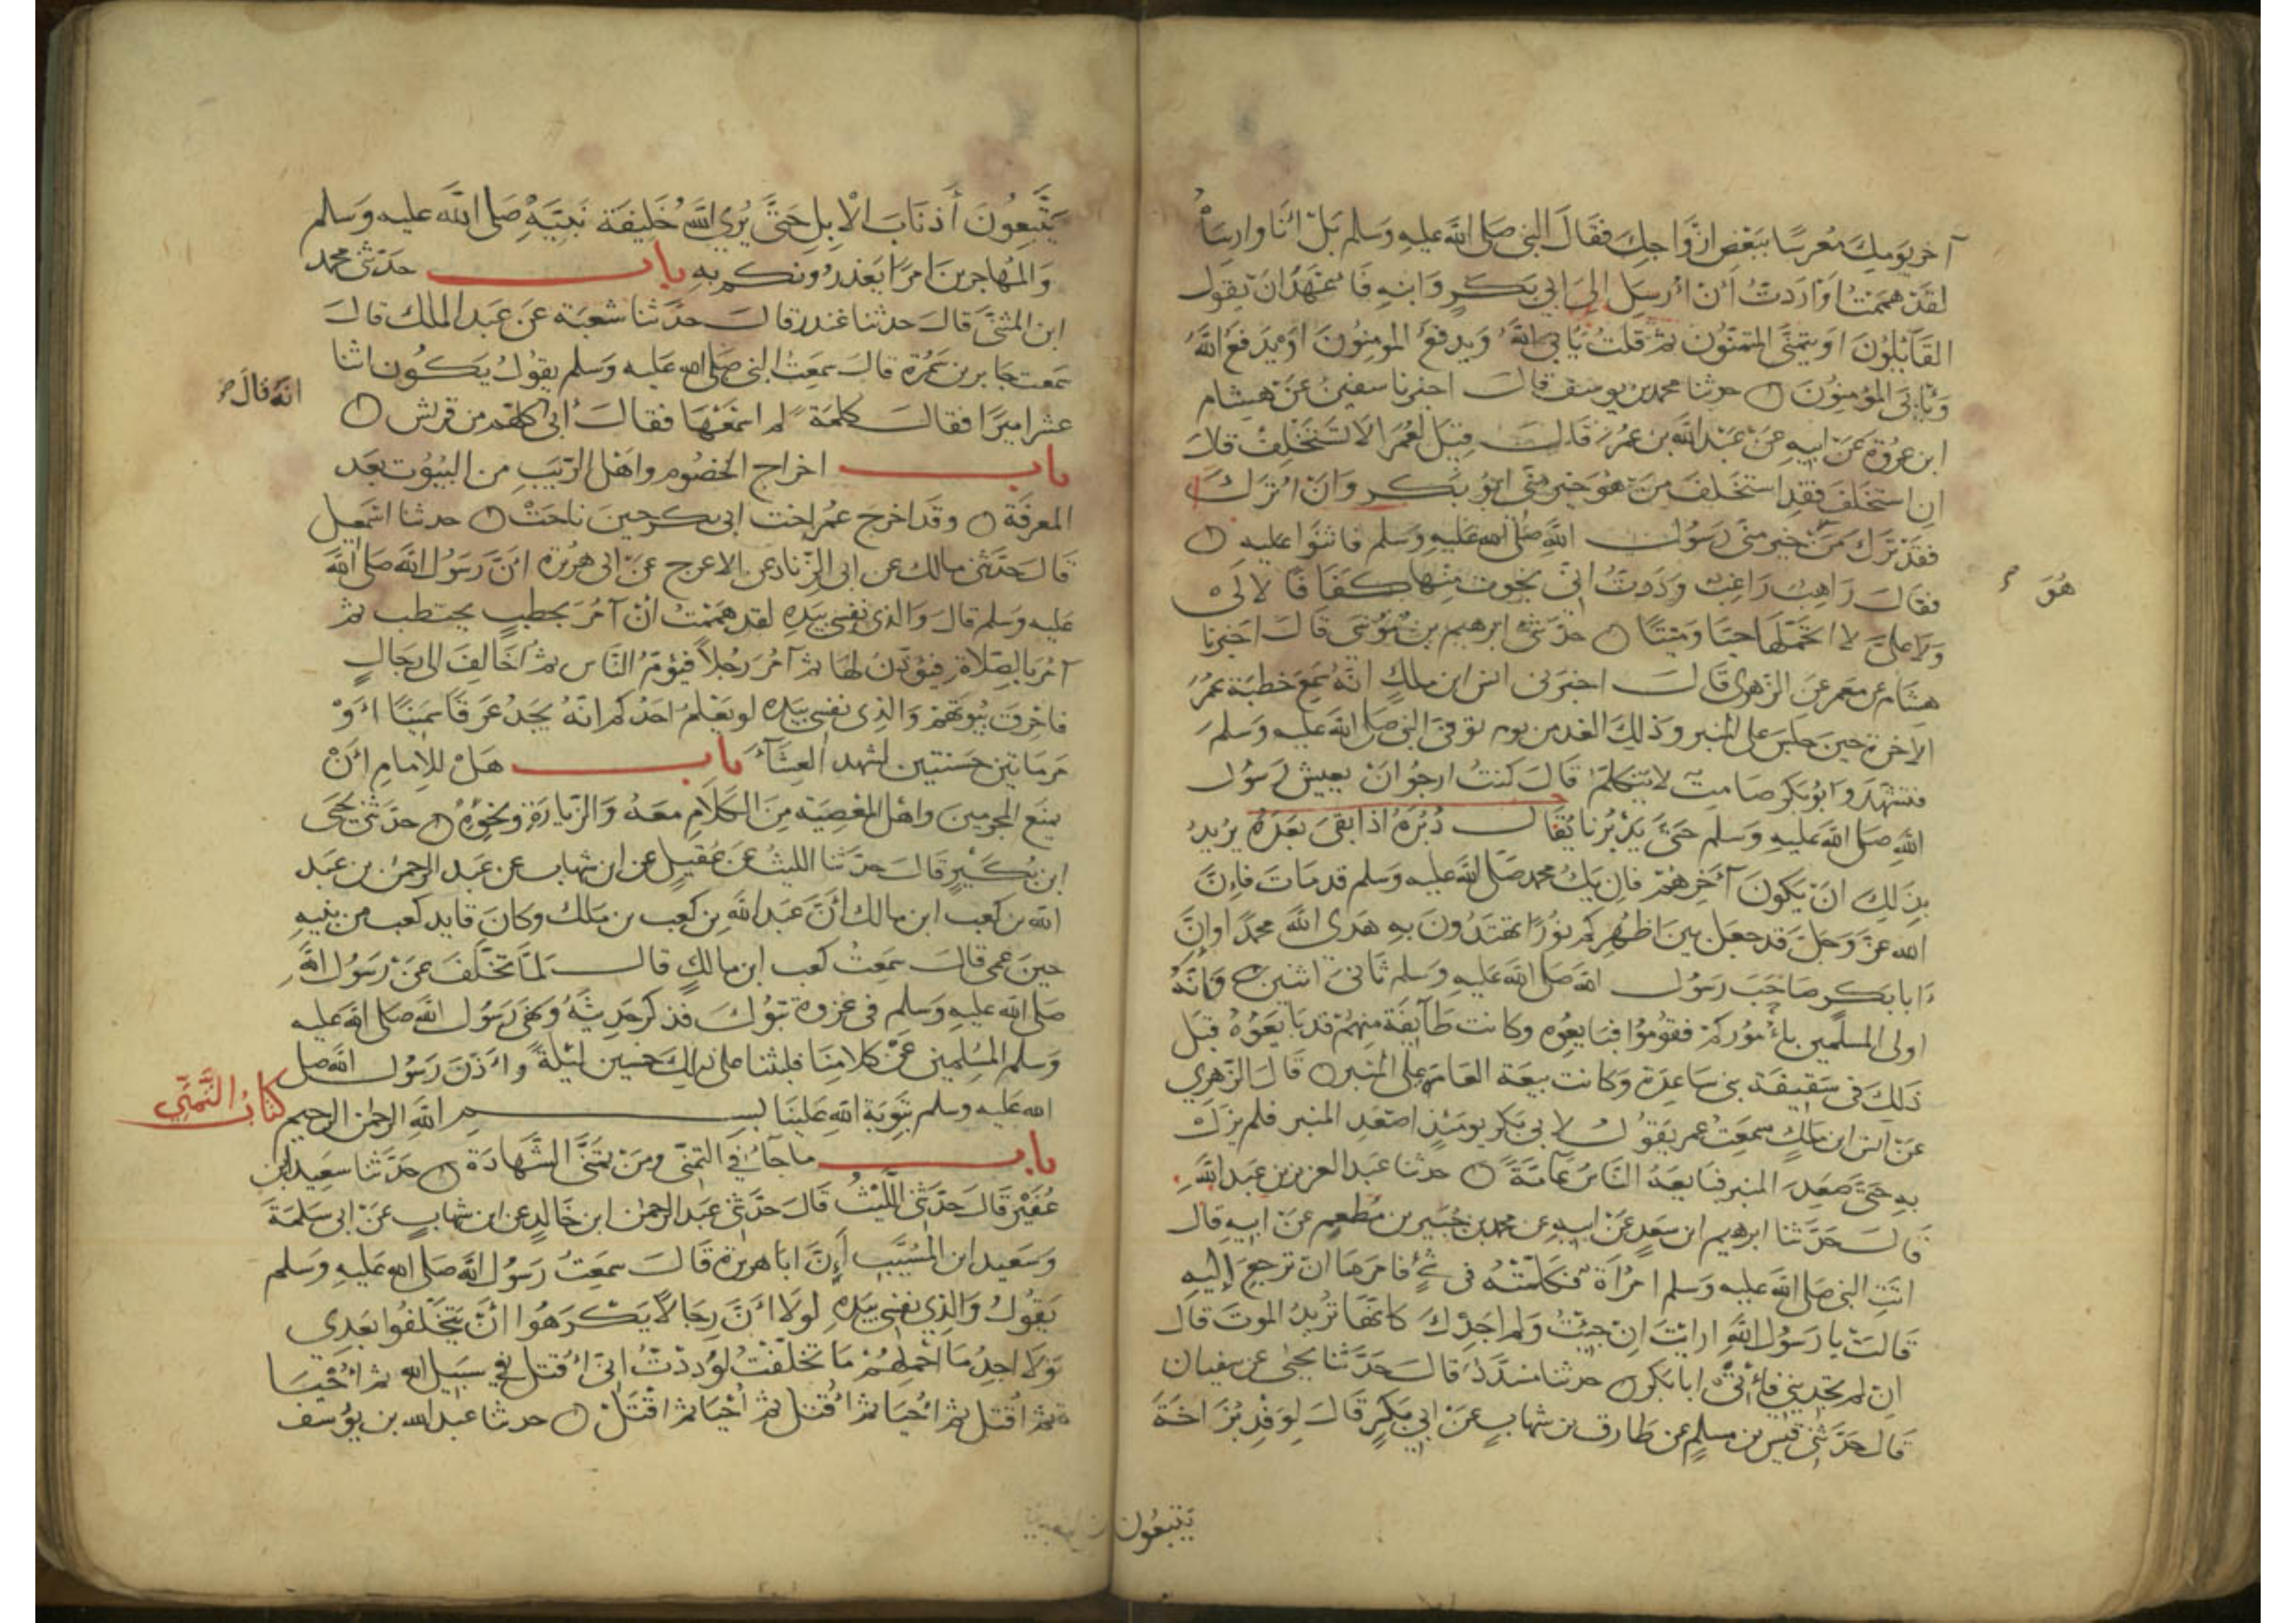 آخر يومك معرسا ببعض ازواجك فقال النبي صلى الله عليه وسلم بل انا وارساه
لقد هممت او اردت ان ارسل الى ابي بكر وابنه فاعهد ان يقول
القائلون او يتمنى المتمنون ثم قلت يابى الله ويدفع المومنون او يدفع الله
ويابى المؤمنون ۝ حدثنا محمد بن يوسف قال اخبرنا سفين عن هشام
ابن عروة عن ابيه عن عبد الله بن عمر قال قيل لعمر الا تستخلف قال
ان استخلف فقد استخلف من هو خير مني ابو بكر وان اترك
فقد ترك من خير مني رسول الله صلى الله عليه وسلم فاثنوا عليه ۝
هو
فقال راهب راغب وددت اني نجوت منها كفافا لا لي
ولا علي لا اتحملها حيا وميتا ۝ حدثني ابرهيم بن موسى قال اخبرنا
هشام عن معمر عن الزهري قال اخبرني انس ابن ملك انه سمع خطبة عمر
الاخرة حين جلس على المنبر وذلك الغد من يوم توفي النبي صلى الله عليه وسلم
فتشهد وابو بكر صامت لا يتكلم قال كنت ارجو ان يعيش رسول
الله صلى الله عليه وسلم حتى يدبرنا يقال دبره اذا بقي بعده يريد
بذلك ان يكون آخرهم فان يك محمد صلى الله عليه وسلم قد مات فان
الله عز وجل قد جعل بين اظهركم نورا تهتدون به هدى الله محمدا وان
ابا بكر صاحب رسول الله صلى الله عليه وسلم ثاني اثنين وانه
اولى المسلمين باموركم فقوموا فبايعوه وكانت طائفة منهم قد بايعوه قبل
ذلك في سقيفة بني ساعدة وكانت بيعة العامة على المنبر ۝ قال الزهري
عن انس ابن ملك سمعت عمر يقول لابي بكر يومئذ اصعد المنبر فلم يزل
به حتى صعد المنبر فبايعه الناس عامة ۝ حدثنا عبد العزيز بن عبد الله
قال حدثنا ابرهيم ابن سعد عن ابيه عن محمد بن جبير بن مطعم عن ابيه قال
اتت النبي صلى الله عليه وسلم امراة فكلمته في شئ فامرها ان ترجع إليه
قالت يا رسول الله ارايت ان جئت ولم اجدك كانها تريد الموت قال
ان لم تجديني فأتي ابا بكر ۝ حدثنا مسدد قال حدثنا يحيى عن سفيان
قال حدثني قيس بن مسلم عن طارق بن شهاب عن ابي بكر قال لوفد بزاخة
يتبعون
يتبعون أذناب الابل حتى يري الله خليفة نبيه صلى الله عليه وسلم
والمهاجرين امرا يعذرونكم به باب حدثني محمد
ابن المثنى قال حدثنا غندر قال حدثنا شعبة عن عبد الملك قال
سمعت جابر بن سمرة قال سمعت النبي صلى الله عليه وسلم يقول يكون اثنا
انه قال
عشر اميرا فقال كلمة لم اسمعها فقال ابي كلهم من قريش ۝
باب اخراج الخصوم واهل الريب من البيوت بعد
المعرفة ۝ وقد اخرج عمر اخت ابي بكر حين ناحت ۝ حدثنا اسمعيل
قال حدثني مالك عن ابي الزناد عن الاعرج عن ابي هريرة ان رسول الله صلى الله
عليه وسلم قال والذي نفسي بيده لقد هممت ان آمر بحطب يحتطب ثم
آمر بالصلاة فيؤذن لها ثم آمر رجلا فيؤم الناس ثم اخالف الى رجال
فاحرق بيوتهم والذي نفسي بيده لو يعلم احدكم انه يجد عرقا سمينا او
مرماتين حسنتين لشهد العشاء باب هل للامام ان
يمنع المجرمين واهل المعصية من الكلام معه والزيارة ونحوه ۝ حدثني يحيى
ابن بكير قال حدثنا الليث عن عقيل عن ابن شهاب عن عبد الرحمن بن عبد
الله بن كعب ابن مالك أن عبد الله بن كعب بن ملك وكان قايد كعب من بنيه
حين عمي قال سمعت كعب ابن مالك قال لما تخلف عن رسول الله
صلى الله عليه وسلم في غزوة تبوك فذكر حديثه ونهى رسول الله صلى الله عليه
وسلم المسلمين عن كلامنا فلبثنا على ذلك خمسين ليلة واذن رسول الله صلى
الله عليه وسلم بتوبة الله علينا بسم الله الرحمن الرحيم
كتاب التمني
باب ما جاء في التمني ومن تمنى الشهادة ۝ حدثنا سعيد ابن
عفير قال حدثني الليث قال حدثني عبد الرحمن ابن خالد عن ابن شهاب عن ابي سلمة
وسعيد ابن المسيب أن ابا هريرة قال سمعت رسول الله صلى الله عليه وسلم
يقول والذي نفسي بيده لولا ان رجالا يكرهوا ان يتخلفوا بعدي
ولا اجد ما احملهم ما تخلفت لوددت اني اقتل في سبيل الله ثم احيا
ثم اقتل ثم احيا ثم اقتل ثم أحيا ثم اقتل ۝ حدثنا عبد الله بن يوسف